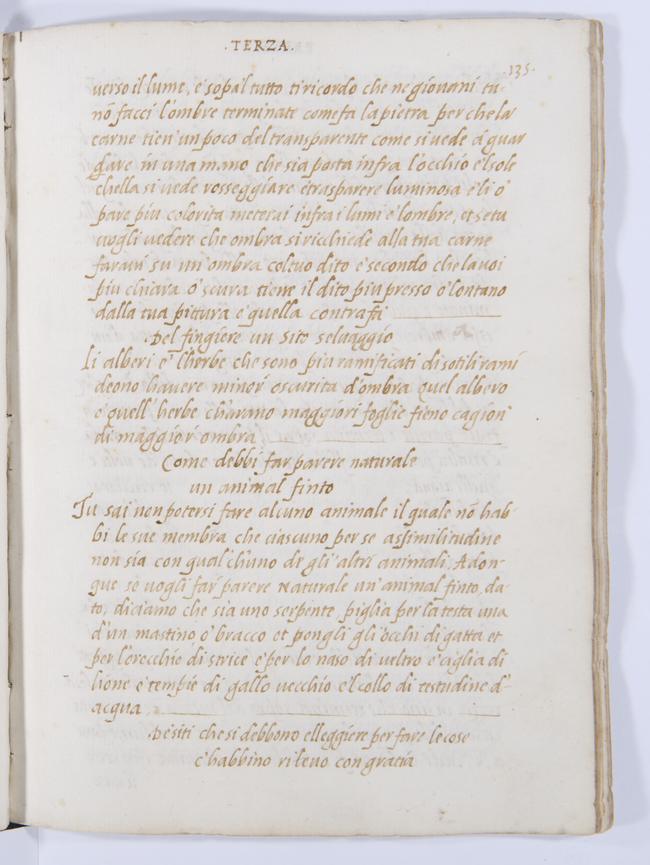 .TERZA.
135.
verso il lume, e sopa'l tutto ti ricordo che ne giovani tu
nõ facci l'ombre terminate come fa la pietra per che la
carne tien' un poco del transparente come si vede à guar
dare in una mano che sia posta infra l'occhio e'l sole
ch'ella si vede rosseggiare e trasparere luminosa e li o'
pare piu colorita meterai infra i lumi e l'ombre, et se tu
vogli vedere che ombra si ricchiede alla tua carne
faravi su un'ombra col tuo dito e secondo che la voi
piu chiara o' scura tiene il dito piu presso o' lontano
dalla tua pittura e quella contrafà
Del fingiere un sito selvaggio
Li alberi e' l'herbe che sono piu ramificati di sotili rami
deono havere minor' oscurita d'ombra quel albero
e quell' herbe ch'arano maggiori foglie fieno cagion'
di maggior' ombra
Come debbi far parere naturale
un animal finto
Tu sai non potersi fare alcuno animale il quale nõ hab-
bi le sue membra che ciascuno per se assimilitudine
non sia con qual ch'uno de gli altri animali. Adon-
que se vogli far' parere naturale un'animal finto, da-
to, diciamo che sia uno serpente, piglia per la testa una
d'un mastino o' bracco et pongli gli occhi di gatta et
per l'orecchie di strice e per lo naso di veltro e ciglia di
lione e tempie di gallo vecchio e'l collo di testudine d'-
acqua
De siti che si debbono elleggiere per fare le cose
c'habbino rilevo con gratia